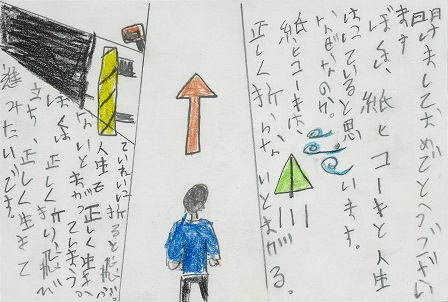 明けましておめでとうござい
ます
ぼくは、紙ヒコーキと人生
はにていると思います。
なぜなのか。
紙ヒコーキは、
正しく折らないとまがる。
ていねいに折ると飛ぶ。
人生も正しく生きな
いとまがってしまう
ぼくは正しく折り、飛び
立ち、正しく生きて
進みたいです。